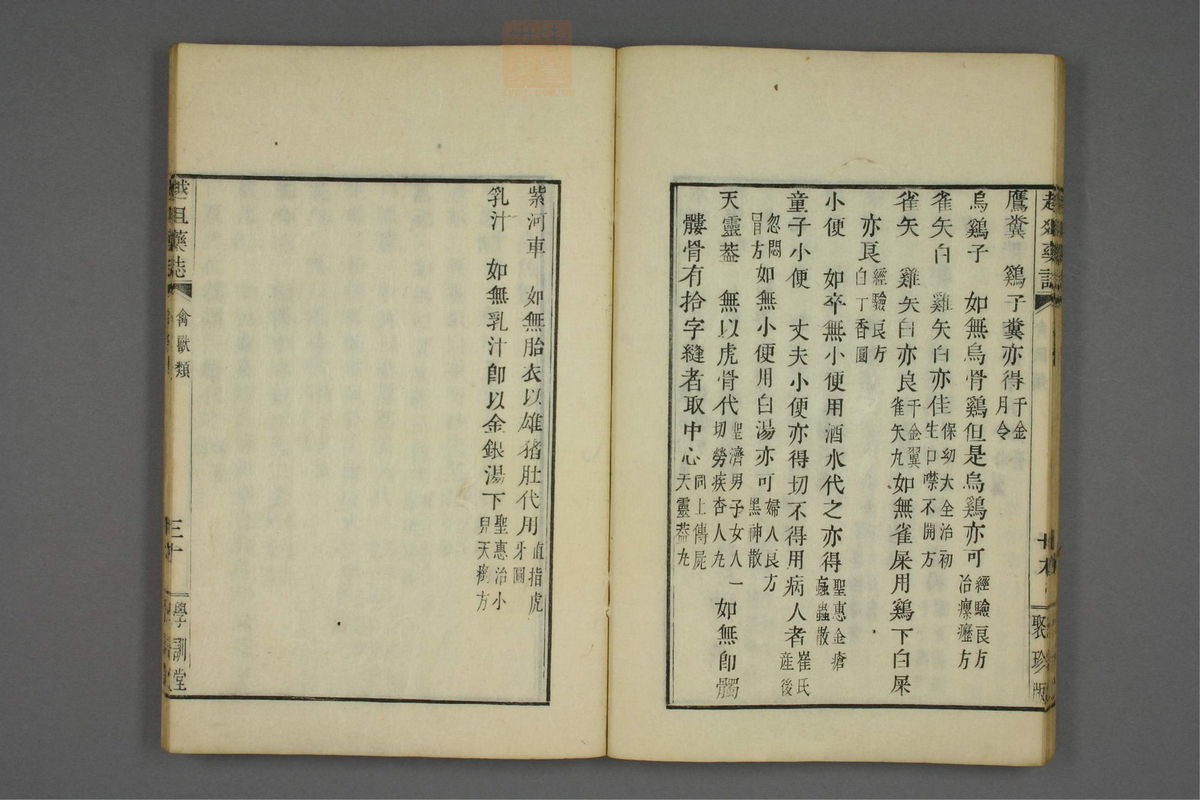 鷹糞　鷄子糞亦得千金月令
烏鷄子　如無烏骨鷄但是烏鷄亦可經驗良方治瘰癧方
雀矢白　雞矢白亦佳保幼大全治初生口噤不開方
雀矢　雞矢白亦良千金翼雀矢丸如無雀屎用鷄下白屎
亦良經驗良方白丁香圓
小便　如卒無小便用酒水代之亦得聖惠金瘡蟲散
童子小便　丈夫小便亦得切不得用病人者崔氏產後
忽悶冒方如無小便用白湯亦可婦人良方黑神散
天靈蓋　無以虎骨代聖濟男子女人一切勞疾杏人丸如無卽髑
髏骨有拾字縫者取中心同上傳屍天靈蓋丸
聚珍版
紫河車　如無胎衣以雄猪肚代用直指虎牙圓
乳汁　如無乳汁卽以金銀湯下聖惠治小兒天瘹方
藥誌
禽獸類
三十
學訓堂